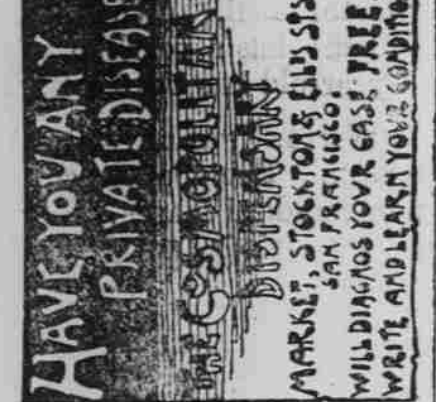 HAVE YOU ANY
PRIVATE DISEASE
THE COSMOPOLITAN
DISPENSARY
MARKET, STOCKTON & ELLIS STS
SAN FRANCISCO.
WILL DIAGNOS YOUR CASE FREE
WRITE AND LEARN YOUR CONDITIO